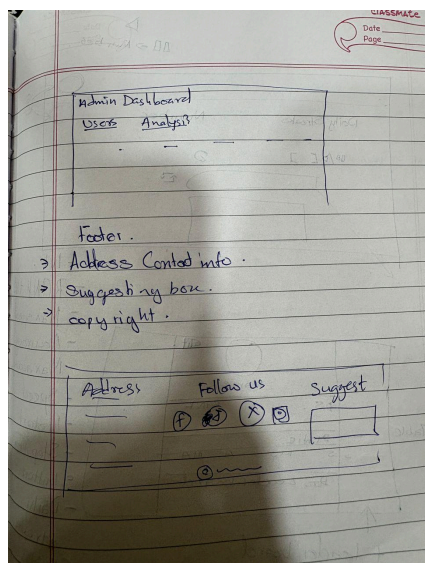 CLASSMATE
Date
Page
Admin Dashboard
Users Analysis
Footer.
→ Address Contact info.
→ Suggesting box.
→ copyright.
Address Follow us Suggest
f X
©